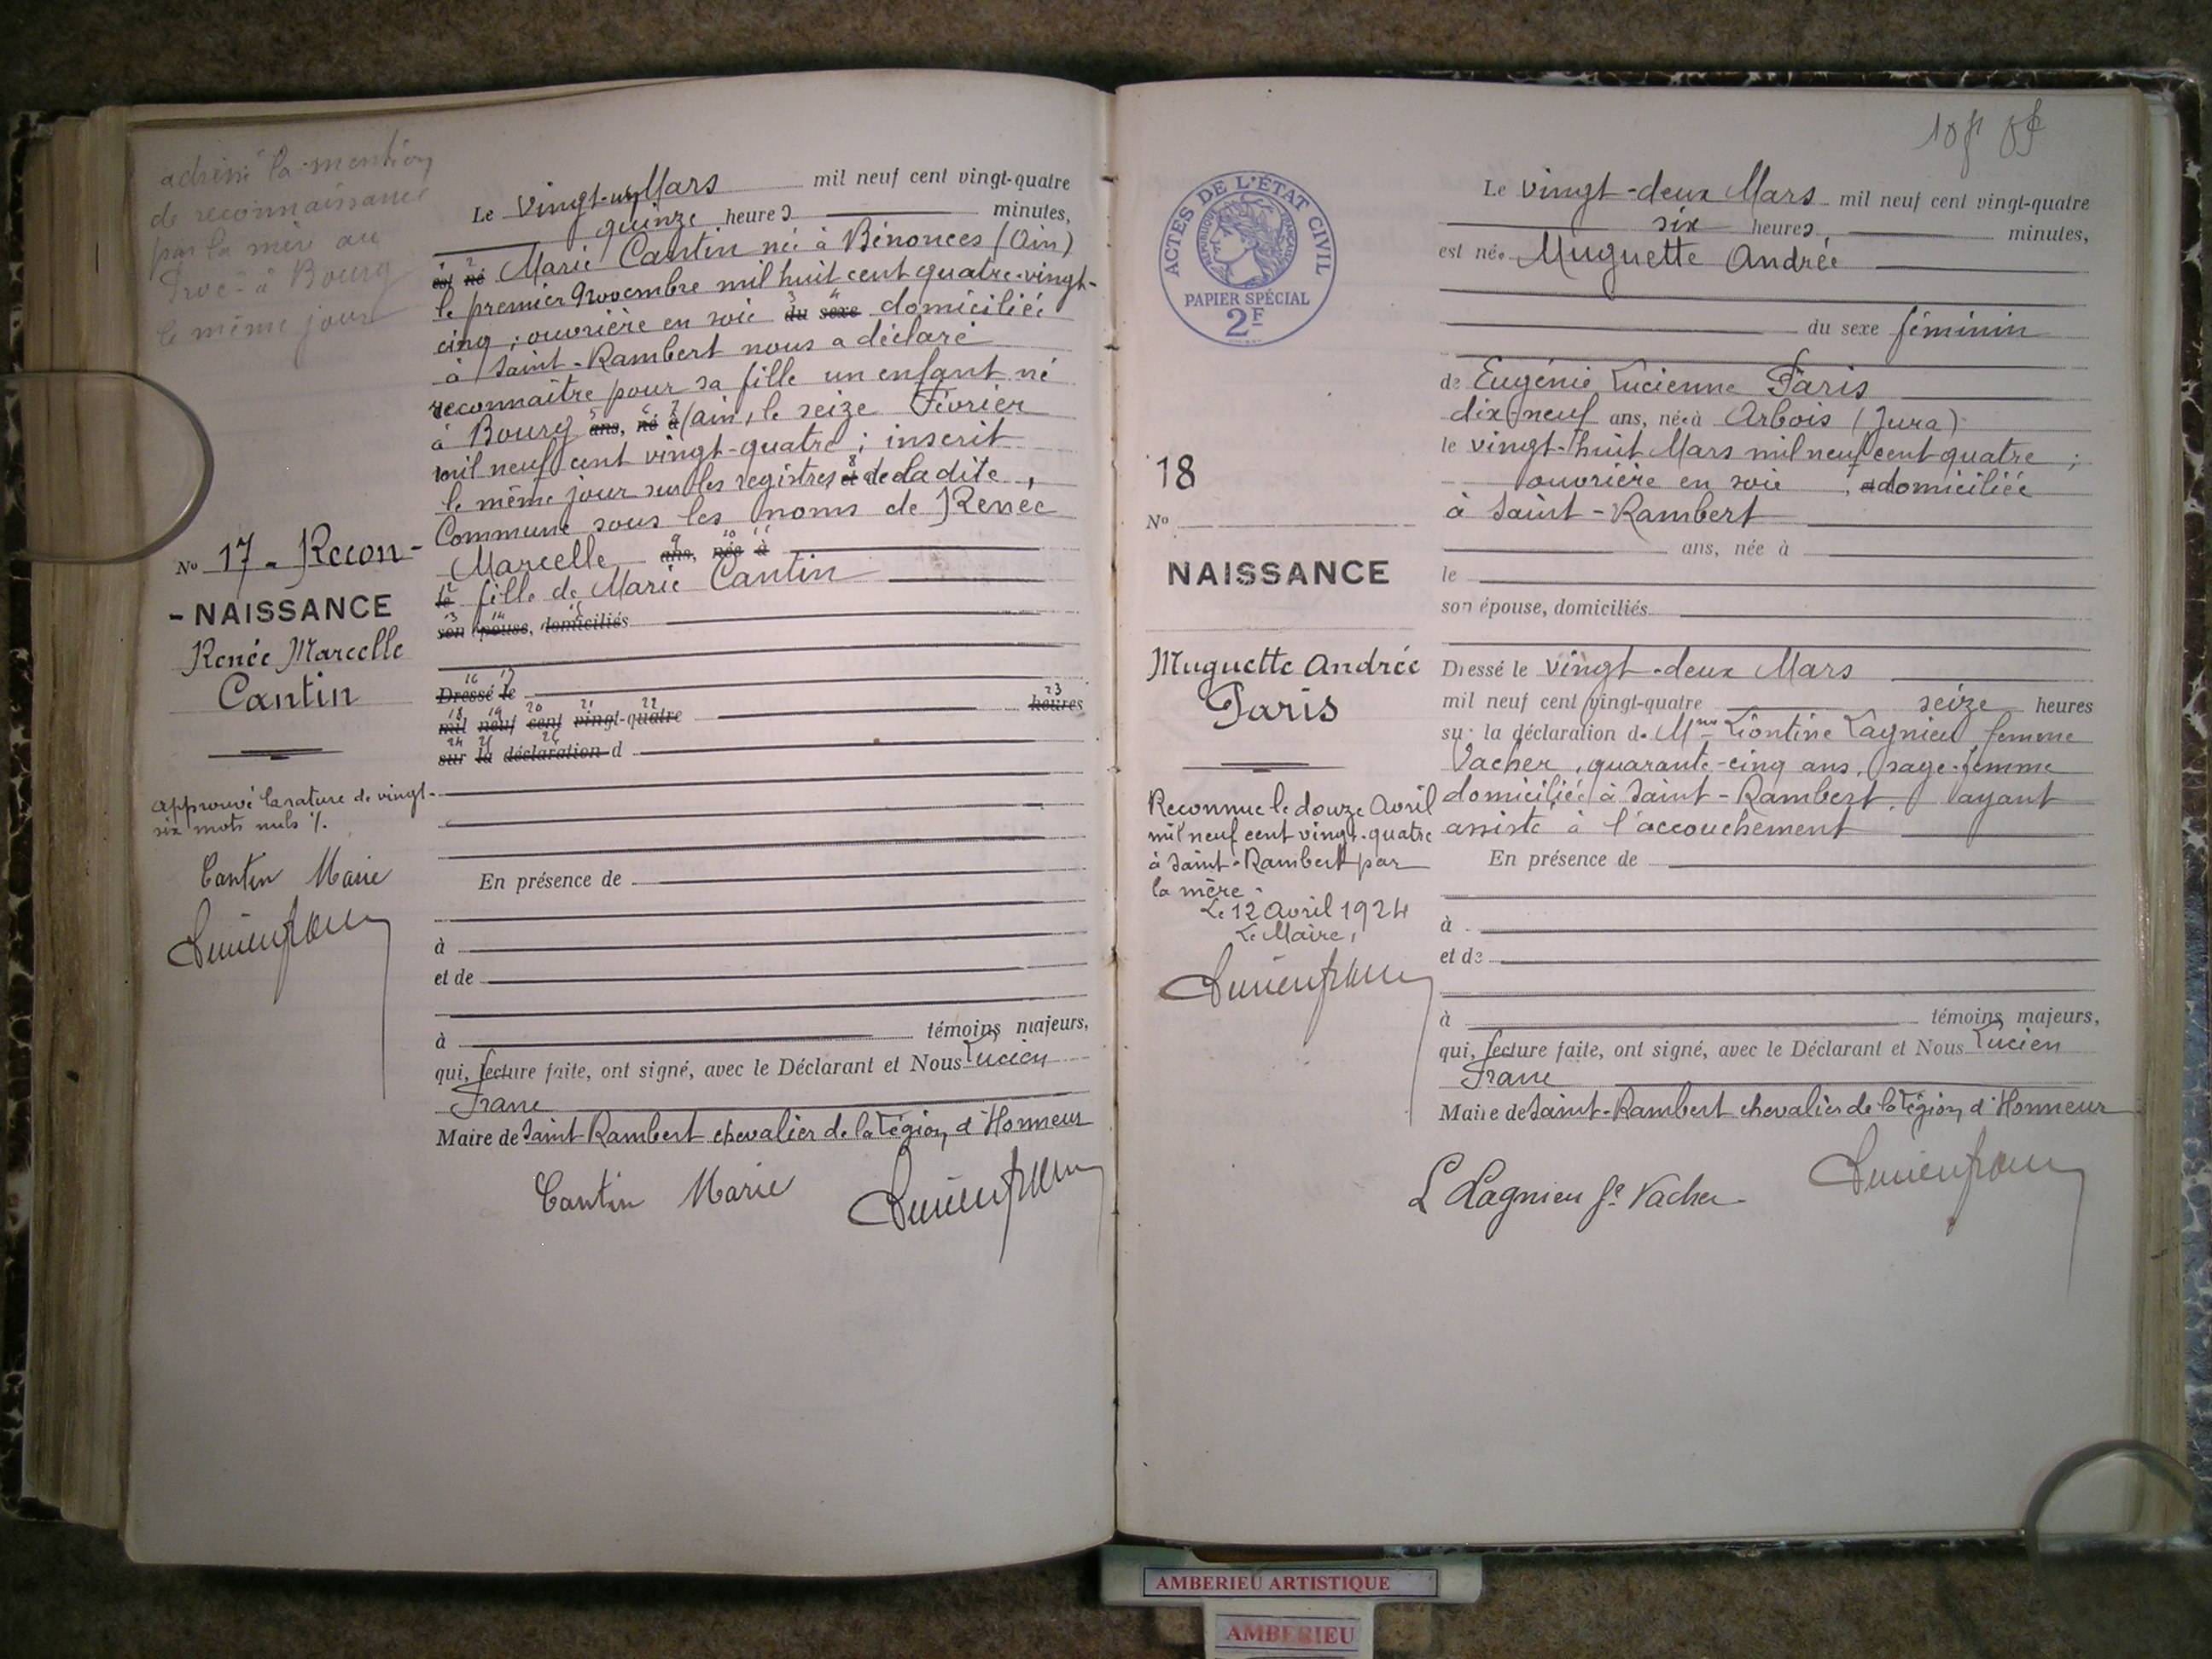 adressé la mention
de reconnaissance
par la mère au
Proc. à Bourg
le même jour
Le Vingt-un Mars mil neuf cent vingt-quatre
quinze heures minutes,
est né Marie Cantin née à Bénonces (Ain)
le premier Novembre mil huit cent quatre-vingt-
cinq ; ouvrière en soie du sexe domiciliée
à Saint-Rambert nous a déclaré
reconnaître pour sa fille un enfant né
à Bourg ans, né à (ain, le seize Février
mil neuf cent vingt-quatre ; inscrit
le même jour sur les registres et de la dite,
Commune sous les noms de Renée
Marcelle ans, née à
le fille de Marie Cantin
son épouse, domiciliés
Dressé le
mil neuf cent vingt-quatre heures
sur la déclaration d
En présence de
à
et de
à témoins majeurs,
qui, lecture faite, ont signé, avec le Déclarant et Nous Lucien
Franc
Maire de Saint-Rambert chevalier de la Légion d'Honneur
Cantin Marie
No 17 - Recon-
- NAISSANCE
Renée Marcelle
Cantin
Approuvé la rature de vingt-
six mots nuls %.
Cantin Marie
ACTES DE L'ÉTAT CIVIL
RÉPUBLIQUE FRANÇAISE
PAPIER SPÉCIAL
2F
18
No
NAISSANCE
Muguette Andrée
Paris
Reconnue le douze Avril
mil neuf cent vingt-quatre
à Saint-Rambert par
la mère -
Le 12 Avril 1924
Le Maire,
Le vingt-deux Mars mil neuf cent vingt-quatre
six heures, minutes,
est née Muguette Andrée
du sexe féminin
de Eugénie Lucienne Paris
dix-neuf ans, née à Arbois (Jura)
le vingt-huit Mars mil neuf cent quatre ;
ouvrière en soie , domiciliée
à Saint-Rambert
ans, née à
le
son épouse, domiciliés
Dressé le vingt-deux Mars
mil neuf cent vingt-quatre seize heures
sur la déclaration de Mme Léontine Lagnieu, femme
Vacher, quarante-cinq ans, sage-femme
domiciliée à Saint-Rambert, ayant
assisté à l'accouchement
En présence de
à
et de
à témoins majeurs,
qui, lecture faite, ont signé, avec le Déclarant et Nous Lucien
Franc
Maire de Saint-Rambert chevalier de la Légion d'Honneur
L Lagnieu fe Vacher
AMBERIEU ARTISTIQUE
AMBERIEU